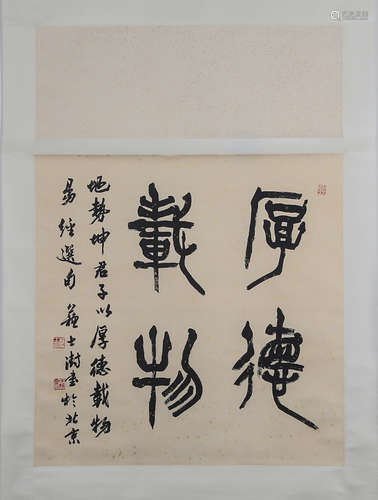 厚德
載物
地勢坤君子以厚德載物
易經選句蘇士澍書於北京